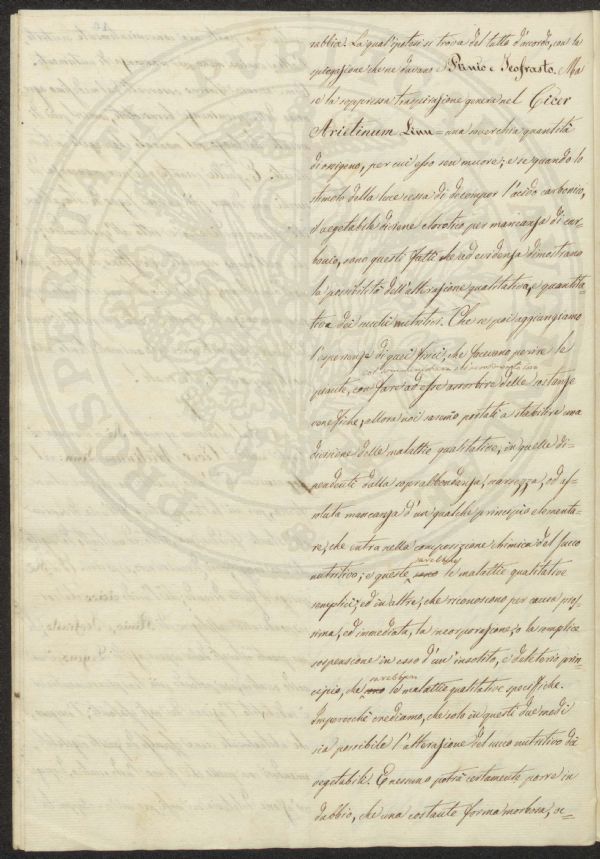 rabbia. La qual'ipotesi si trova del tutto d'accordo, con la
spiegazione che ne davano Plinio e Teofrasto. Ma
se la soppressa traspirazione genera nel Cicer
Arietinum Linn = una soverchia quantità
di ossigeno, per cui esso sen muore; e se quando lo
stimolo della luce cessa di decompor l'acido carbonico,
il vegetabile diviene clorotico per mancanza di car-
bonio, sono questi fatti che ad evidenza dimostrano
la possibilità dell'alterazione qualitativa, e quantita-
tiva dei succhi nutritivi. Che se poi aggiungiamo
l'esperienze di quei fisici, che facevano perire le
piante, con fare ad esse assorbire delle sostanze
venefiche, allora noi saremo portati a stabilire una
divisione delle malattie qualitative, in quelle di-
pendenti dalla soprabbondanza, scarsezza, ed as-
soluta mancanza d'un qualche principio elementa-
re, che entra nella composizione chimica del succo
sarebbero
nutritivo; e queste sono le malattie qualitative
semplici; ed in altre, che riconoscono per causa pros-
sima, ed immediata, la incorporazione, o la semplice
sospensione in esso d'un insolito, e deleterio prin-
sarebbero
cipio, che sono le malattie qualitative specifiche.
Imperocchè crediamo, che solo in questi due modi
sia possibile l'alterazione del succo nutritivo dei
vegetabili. E nessuno potrà certamente porre in
dubbio, che una costante forma morbosa,